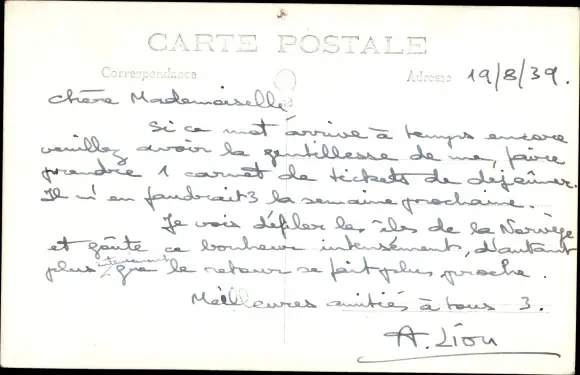 CARTE POSTALE
Correspondance
Adresse 19/8/39.
Chère Mademoiselle
Si ce mot arrive à temps encore
veuillez avoir la gentillesse de me faire
prendre 1 carnet de tickets de déjeûner.
Il m'en faudrait 3 la semaine prochaine.
Je vois défiler les îles de la Norvège
et goûte ce bonheur intensément, d'autant
plus intensément que le retour se fait plus proche.
Meilleures amitiés à tous 3.
A. Lion